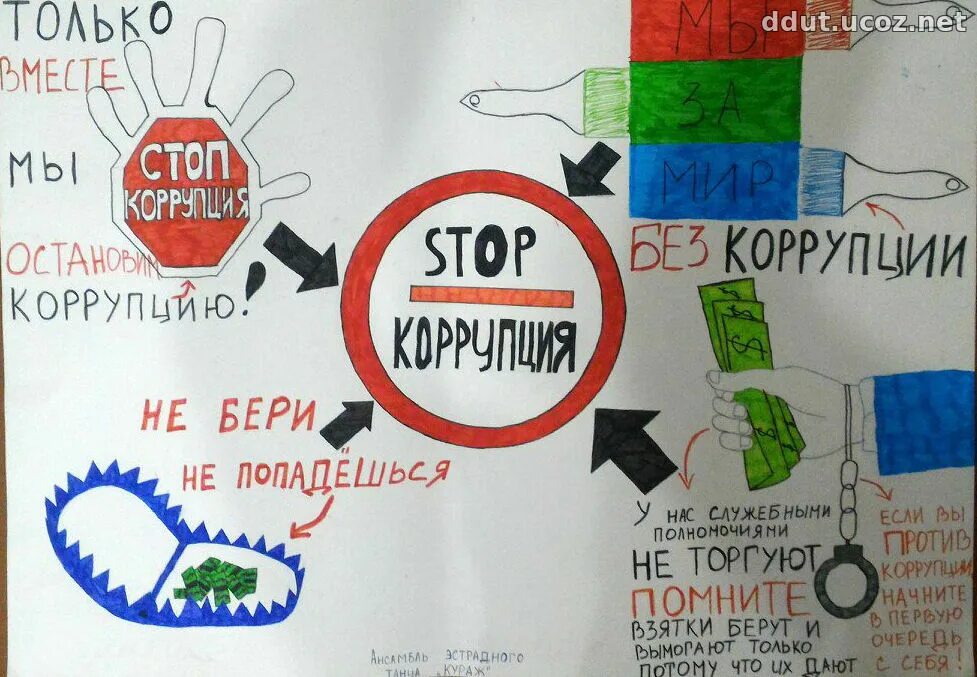 ddut.ucoz.net
ТОЛЬКО
ВМЕСТЕ
МЫ
ОСТАНОВИМ
КОРРУПЦИЮ!
СТОП
КОРРУПЦИЯ
МЫ
ЗА
МИР
БЕЗ КОРРУПЦИИ
STOP
КОРРУПЦИЯ
НЕ БЕРИ
НЕ ПОПАДЁШЬСЯ
$
$
$
У НАС СЛУЖЕБНЫМИ
ПОЛНОМОЧИЯМИ
НЕ ТОРГУЮТ
ПОМНИТЕ
ВЗЯТКИ БЕРУТ И
ВЫМОГАЮТ ТОЛЬКО
ПОТОМУ ЧТО ИХ ДАЮТ
ЕСЛИ ВЫ
ПРОТИВ
КОРРУПЦИИ
НАЧНИТЕ
В ПЕРВУЮ
ОЧЕРЕДЬ
С СЕБЯ!
АНСАМБЛЬ ЭСТРАДНОГО
ТАНЦА "КУРАЖ"